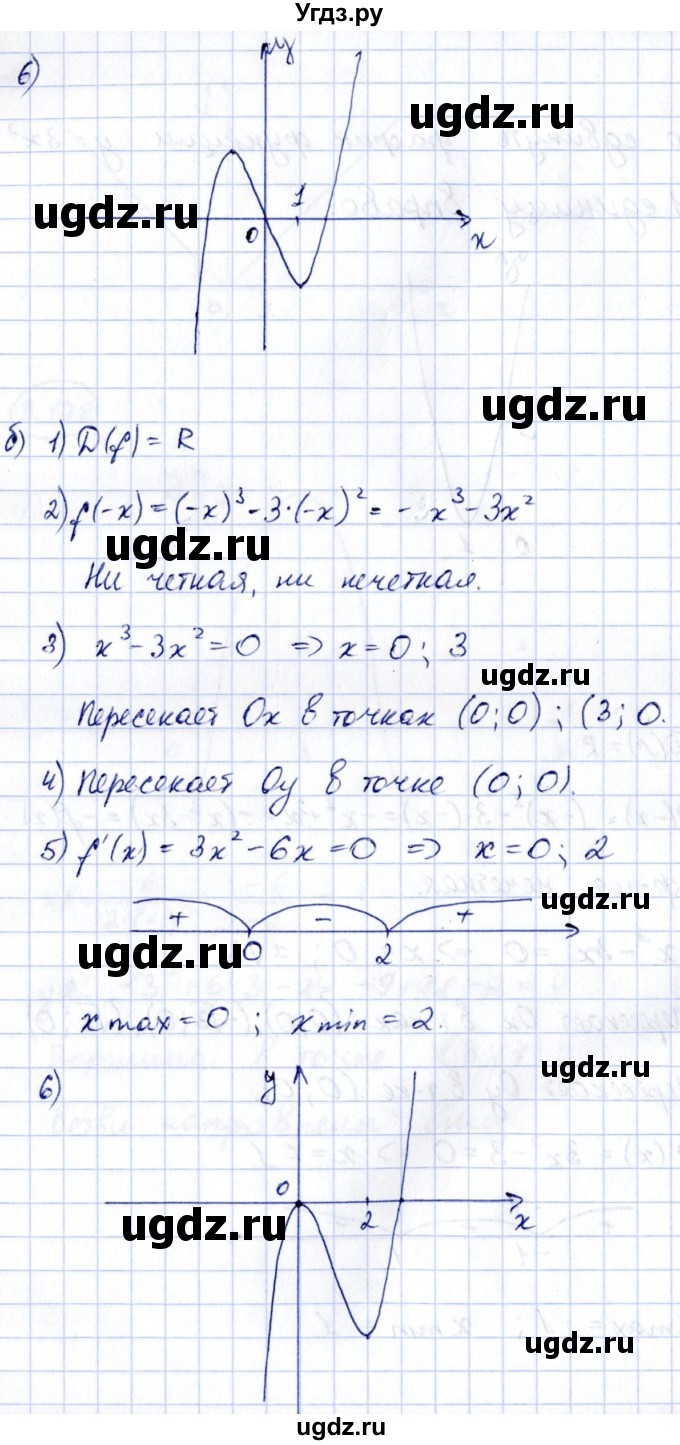 Угдз.ру
6)
y
ugdz.ru
ugdz.ru
1
0
x
ugdz.ru
б) 1) D(f) = R
2) f(-x) = (-x)³ - 3·(-x)² = - x³ - 3x²
ugdz.ru
Ни четная, ни нечетная.
3) x³ - 3x² = 0 => x = 0; 3
ugdz.ru
Пересекает Ox в точках (0; 0); (3; 0.
4) Пересекает Oy в точке (0; 0).
5) f'(x) = 3x² - 6x = 0 => x = 0; 2
ugdz.ru
+ - +
ugdz.ru
0 2
x max = 0; x min = 2.
ugdz.ru
6)
y
0
ugdz.ru
2
x
ugdz.ru
ugdz.ru